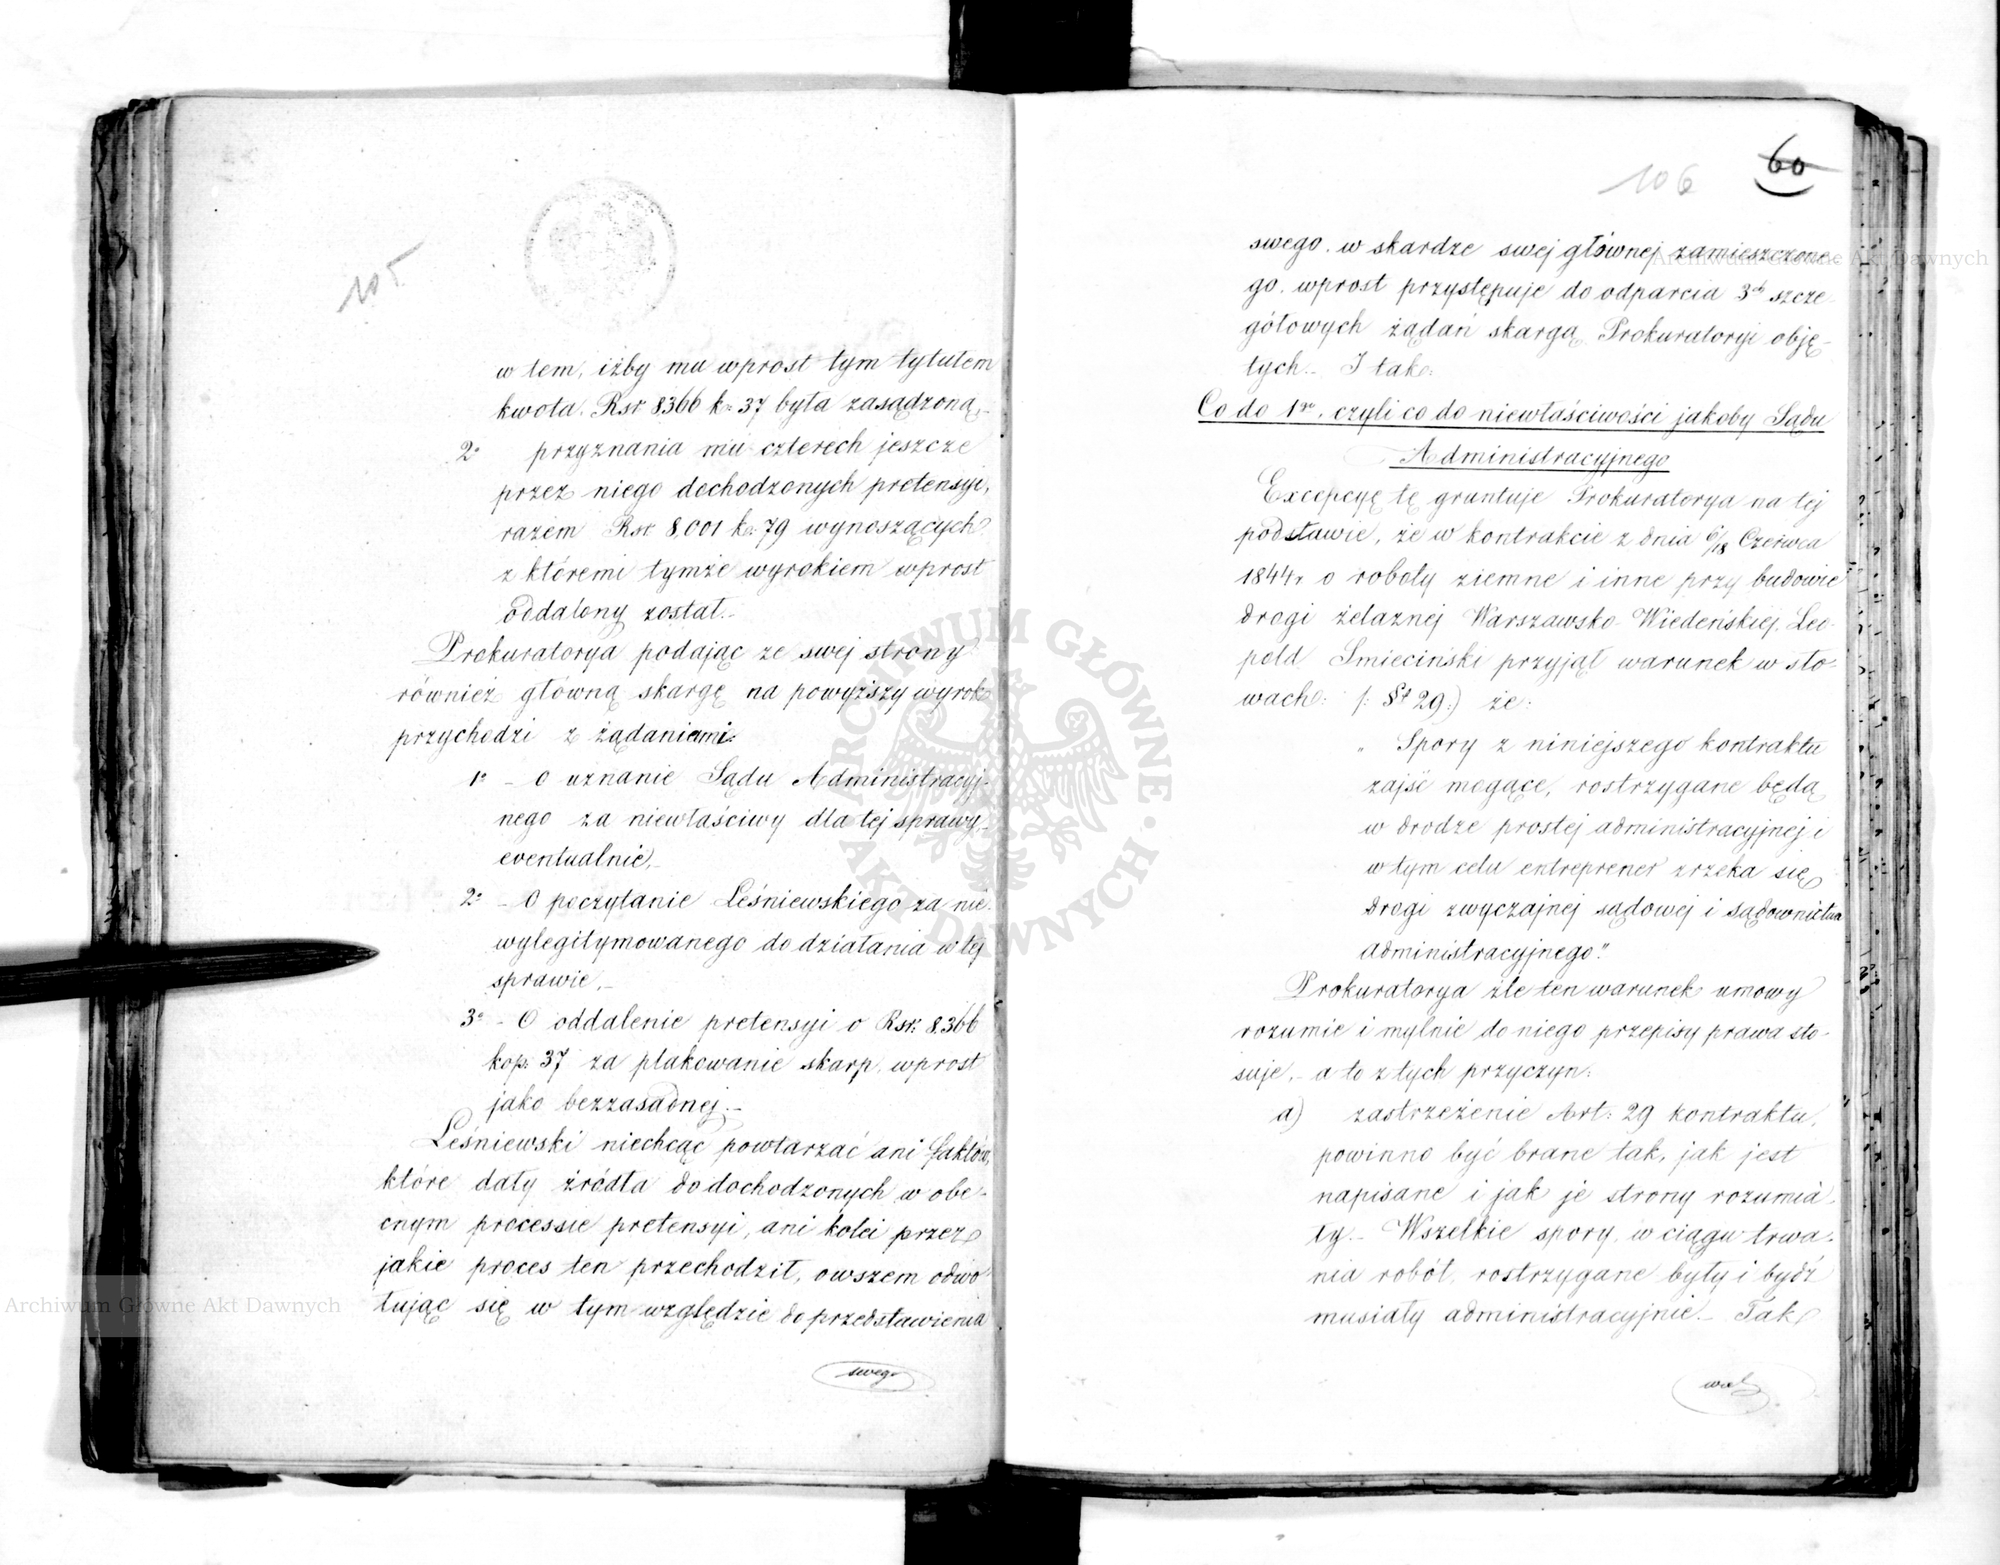 105
w tem, iżby mu wprost tym tytułem
kwota Rsr 8366 k: 37 była zasądzoną,
2° przyznania mu czterech jeszcze
przez niego dochodzonych pretensyi,
razem Rsr 8,001 k: 79 wynoszących
z któremi tymże wyrokiem wprost
oddalony został.-
Prokuratorya podając ze swej strony
również główną skargę na powyższy wyrok
przychodzi z żądaniami:
1° - O uznanie Sądu Administracyj-
nego za niewłaściwy dla tej sprawy,-
eventualnie,-
2° - O poczytanie Leśniewskiego za nie-
wylegitymowanego do działania w tej
sprawie,-
3° - O oddalenie pretensyi o Rsr: 8366
kop: 37 za plakowanie skarp, wprost
jako bezzasadnej.-
Leśniewski niechcąc powtarzać ani faktów,
które dały źródła do dochodzonych w obe-
cnym processie pretensyi, ani kolei przez
jakie proces ten przechodził, owszem odwo-
łując się w tym względzie do przedstawienia
swego
106 60
swego w skardze swej głównej zamieszczone-
go, wprost przystępuje do odparcia 3ch szcze-
gółowych żądań skargą Prokuratoryi obję-
tych.- I tak:
Co do 1go, czyli co do niewłaściwości jakoby Sądu
Administracyjnego
Excepcyę tę gruntuje Prokuratorya na tej
podstawie, że w kontrakcie z dnia 6/18 Czerwca
1844 r o roboty ziemne i inne przy budowie
drogi żelaznej Warszawsko-Wiedeńskiej, Leo-
pold Śmieciński przyjął warunek w sło-
wach: /: § 29:) że:
" Spory z niniejszego kontraktu
zajść mogące, rostrzygane będą
w drodze prostej administracyjnej i
w tym celu entreprener zrzeka się
drogi zwyczajnej sądowej i sądownictwa
administracyjnego."
Prokuratorya źle ten warunek umowy
rozumie i mylnie do niego przepisy prawa sto-
suje,- a to z tych przyczyn:
a) zastrzeżenie Art: 29 kontraktu,
powinno być brane tak, jak jest
napisane i jak je strony rozumia-
ły.- Wszelkie spory, w ciągu trwa-
nia robót, rostrzygane były i bydź
musiały administracyjnie.- Tak
Archiwum Główne Akt Dawnych
Archiwum Główne Akt Dawnych
ARCHIWUM GŁÓWNE AKT DAWNYCH